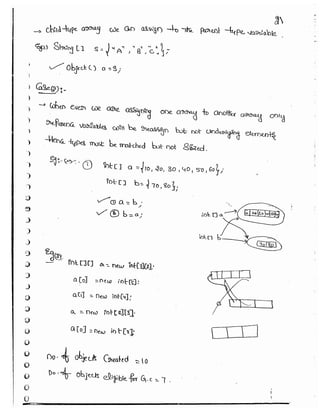 → child-type array we can assign to the parent-type variable.
Eg:- String[] s = {"A", "B", "C"};
✓ Object[] a = s;
Case(2):-
→ When ever we are assigning one array to another array only
reference variables will be reassign but not underlying elements
Hence types must be matched but not sized.
Eg:- ① int[] a = {10, 20, 30, 40, 50, 60};
int[] b = {70, 80};
✓ ⓐ a = b;
✓ ⓑ b = a;
int[] a
int[] b
Eg②
int[][] a = new int[4][3];
a[0] = new int[4];
a[1] = new int[2];
a = new int[3][2];
a[0] = new int[3];
no. of objects created = 10
no. of objects eligible for G.C = 7.